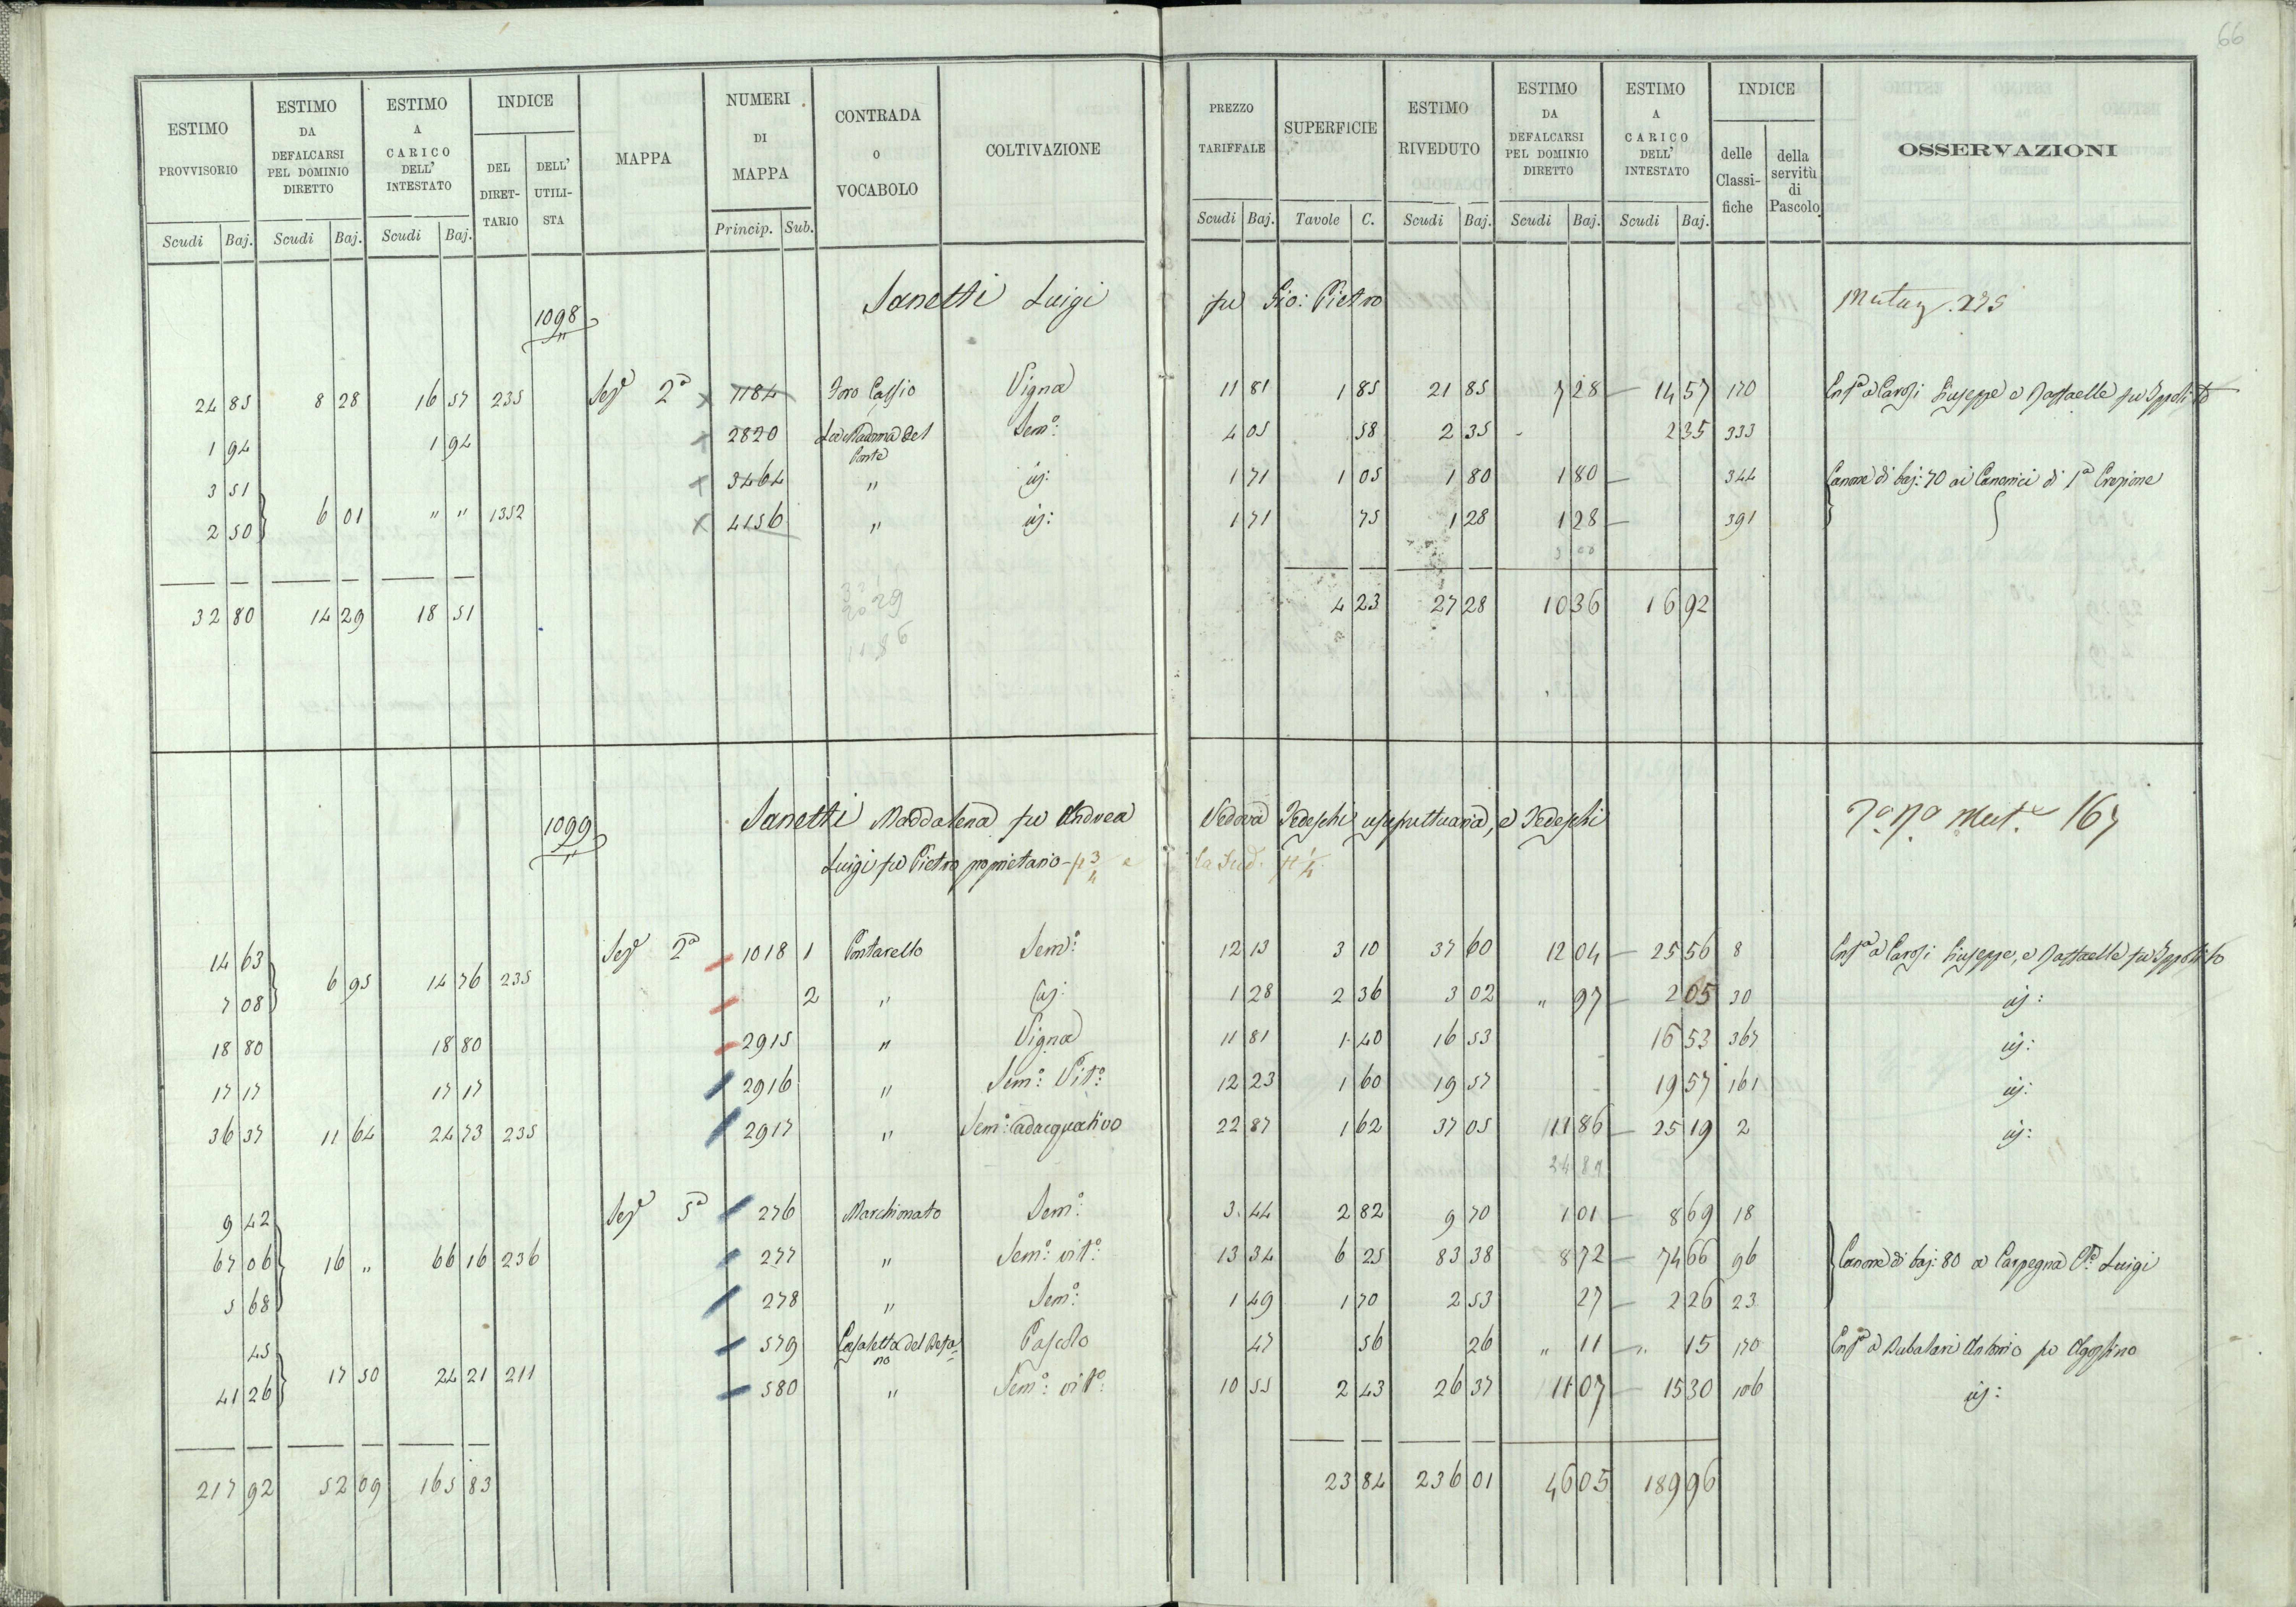 66
ESTIMO PROVVISORIO | ESTIMO DA DEFALCARSI PEL DOMINIO DIRETTO | ESTIMO A CARICO DELL' INTESTATO | INDICE | MAPPA | NUMERI DI MAPPA | CONTRADA O VOCABOLO | COLTIVAZIONE | PREZZO TARIFFALE | SUPERFICIE | ESTIMO RIVEDUTO | ESTIMO DA DEFALCARSI PEL DOMINIO DIRETTO | ESTIMO A CARICO DELL' INTESTATO | INDICE | OSSERVAZIONI
DEL DIRETTARIO | DELL' UTILISTA | delle Classifiche | della servitù di Pascolo
Scudi | Baj. | Scudi | Baj. | Scudi | Baj. | Princip. | Sub. | Scudi | Baj. | Tavole | C. | Scudi | Baj. | Scudi | Baj. | Scudi | Baj.
1098 Sanetti Luigi fu Gio: Pietro
24 85 | 8 28 | 16 57 | 235 | Sez 2a | 1184 | Foro Cassio | Vigna | 11 81 | 1 85 | 21 85 | 7 28 | 14 57 | 170 | Giuseppe e Raffaelle fu Ippolito
1 94 | 1 94 | 2820 | La Madonna del Ponte | Semo: | 4 05 | 58 | 2 35 | - | 2 35 | 333
3 51 | 3464 | " | 1 71 | 1 05 | 1 80 | 1 80 | 344 | Canone di baj: 70 ai Canonici di 1a Erezione
2 50 | 6 01 | " " | 1352 | 4156 | " | 1 71 | 75 | 1 28 | 1 28 | 391
32 80 | 14 29 | 18 51 | 4 23 | 27 28 | 10 36 | 16 92
1099 Sanetti Maddalena fu Andrea Vedova Tedeschi usufruttuaria, e Tedeschi
Luigi fu Pietro proprietario - p 3/4 e la Sud. p 1/4
14 63 | Sez 2a | 1018 | 1 | Pontarello | Semo: | 12 13 | 3 10 | 37 60 | 12 04 | 25 56 | 8 | Giuseppe, e Raffaelle fu Ippolito
7 08 | 6 95 | 14 76 | 235 | 2 | " | 1 28 | 2 36 | 3 02 | " 97 | 2 05 | 30
18 80 | 18 80 | 2915 | " | Vigna | 11 81 | 1 40 | 16 53 | 16 53 | 367
17 17 | 17 17 | 2916 | " | Semo: Vito: | 12 23 | 1 60 | 19 57 | - | 19 57 | 161
36 37 | 11 64 | 24 73 | 235 | 2917 | " | Semo: adacquativo | 22 87 | 1 62 | 37 05 | 11 86 | 25 19 | 2
9 42 | Sez 5a | 276 | Marchionato | Semo: | 3 44 | 2 82 | 9 70 | 1 01 | 8 69 | 18
67 06 | 16 " | 66 16 | 236 | 277 | " | Semo: vito: | 13 34 | 6 25 | 83 38 | 8 72 | 74 66 | 96 | Canone di baj: 80 a Carpegna Luigi
5 68 | 278 | " | Semo: | 1 49 | 1 70 | 2 53 | 27 | 2 26 | 23
45 | 579 | Pascolo | 47 | 56 | 26 | " 11 | " 15 | 170 | Antonio fu Agostino
41 26 | 17 50 | 24 21 | 211 | 580 | " | Semo: vito: | 10 55 | 2 43 | 26 37 | 11 07 | 15 30 | 106
217 92 | 52 09 | 165 83 | 23 84 | 236 01 | 46 05 | 189 96